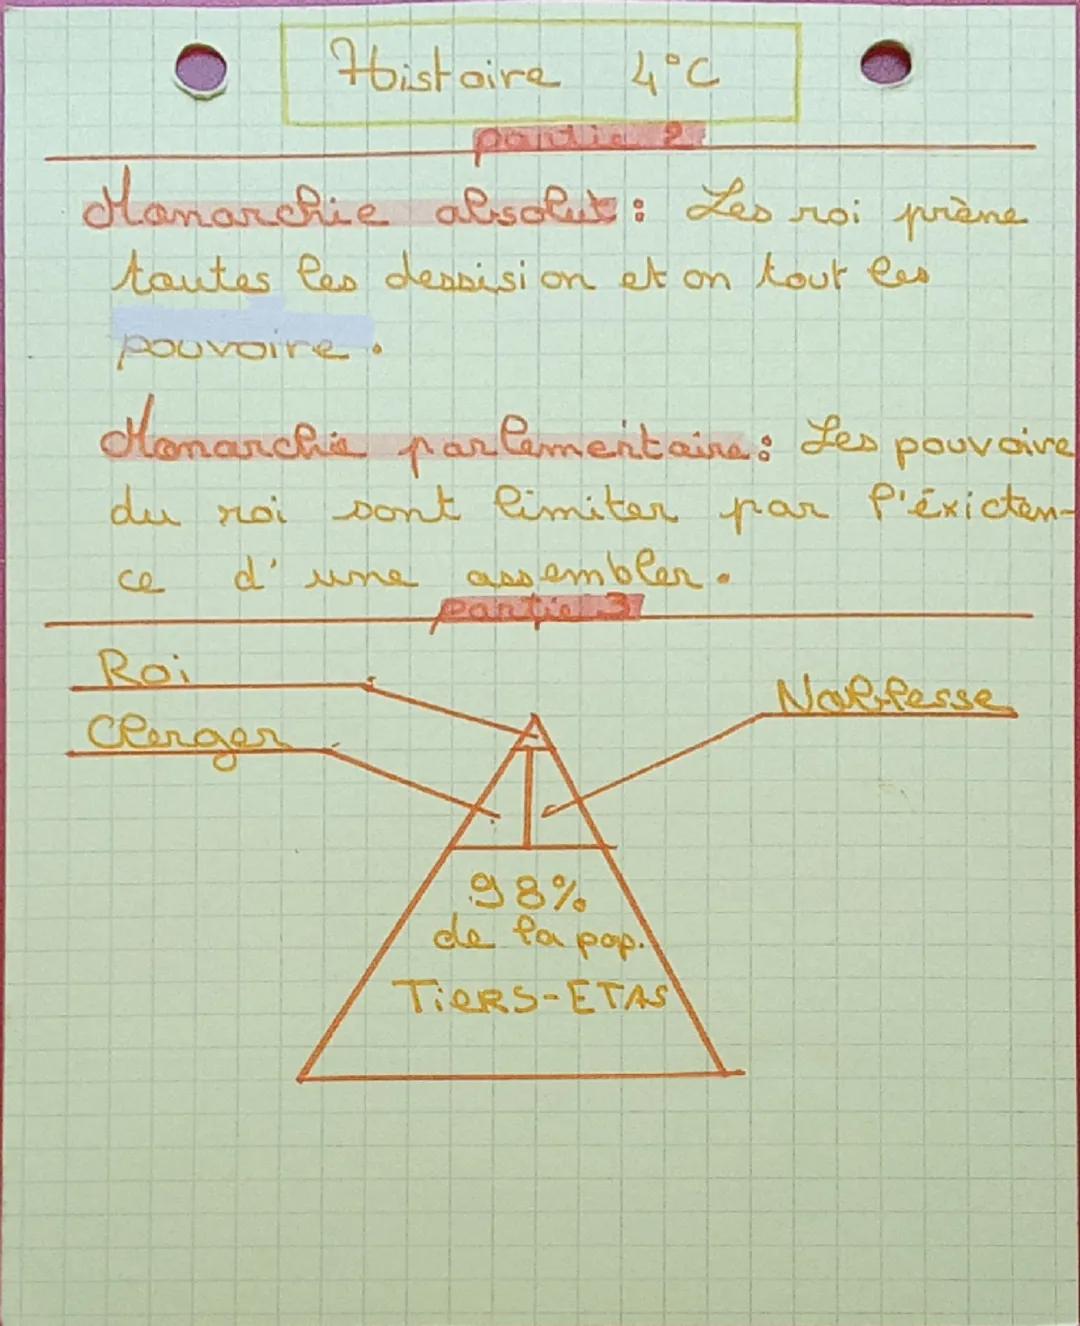 Histoire 4°C
partie 2
Monarchie absolut : Les roi prène
toutes les dessision et on tout les
pouvoire.
Monarchie parlementaire : Les pouvoire
du roi sont limiter par l'éxicten-
ce d'une assembler.
partie 3
Roi
Noblesse
Clerger
98%
de la pop.
TiERS-ETAS